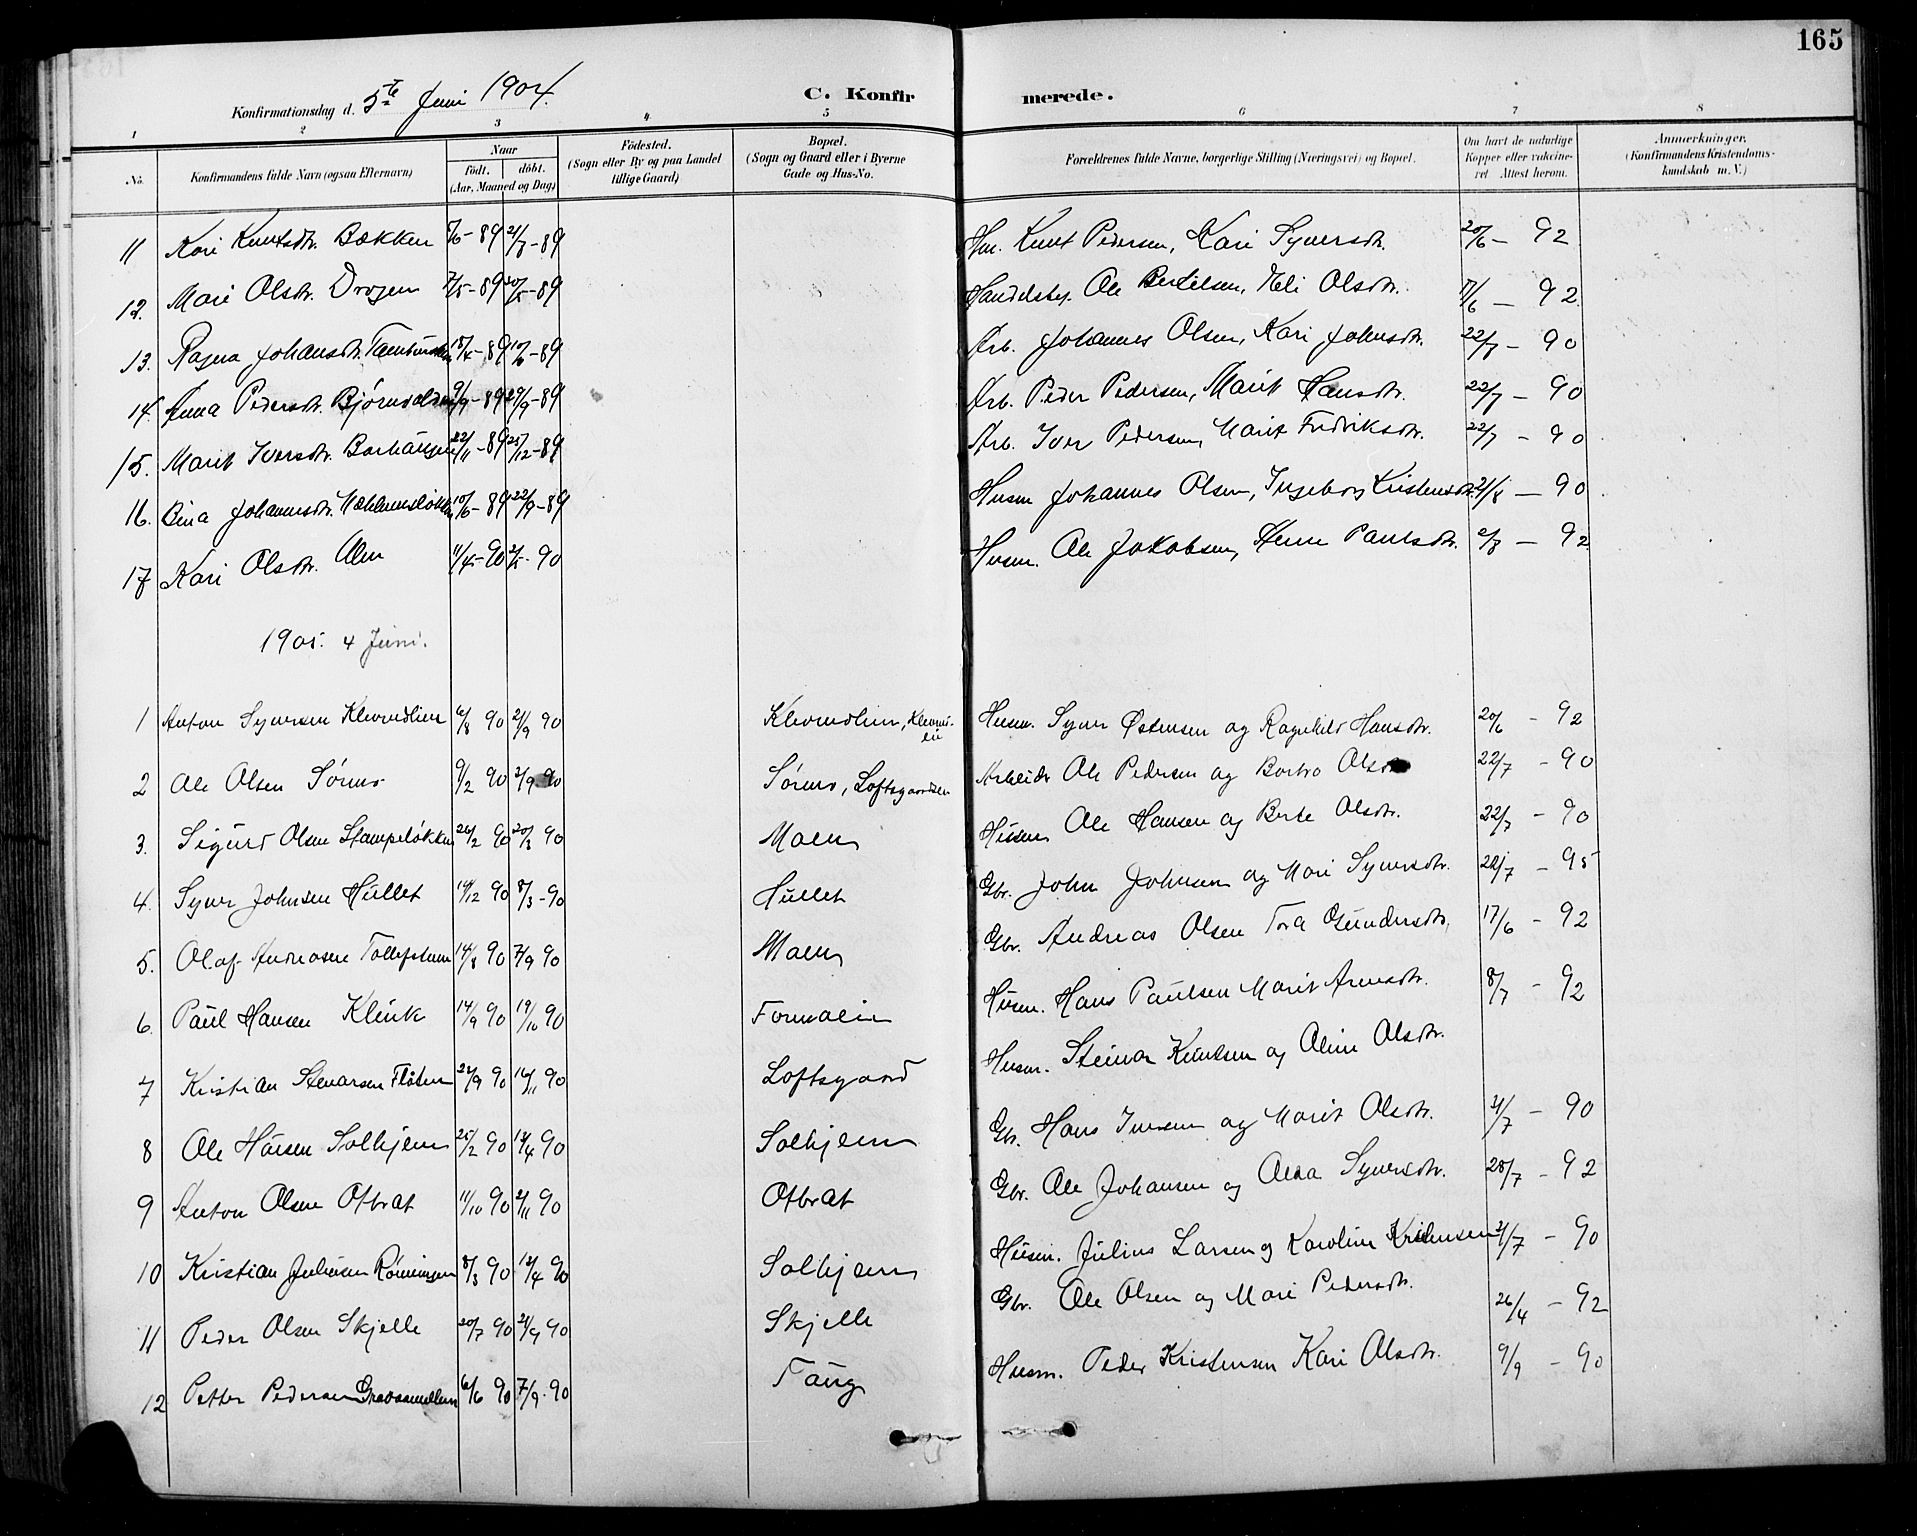 165
Konfirmationsdag d. 5te Juni 1904.
C. Konfirmerede.
1 2 3 4 5 6 7 8
No.
Konfirmandens fulde Navn (ogsaa Efternavn)
Naar
födt. döbt.
(Aar, Maaned og Dag)
Födested.
(Sogn eller By og paa Landet
tillige Gaard)
Bopæl.
(Sogn og Gaard eller i Byerne
Gade og Hus-No.
Forældrenes fulde Navne, borgerlige Stilling (Næringsvei) og Bopæl.
Om havt de naturlige
Kopper eller vaccine-
ret Attest herom.
Anmærkninger.
(Konfirmandens Kristendoms-
kundskab m. V.)
11 Kari Knutsdtr. Bækken 7/6-89 21/7-89 Hm. Knut Pedersen, Kari Syversdtr. 20/6 - 92
12. Mari Olsdtr. Drogen 2/5-89 Ole Bertilsen, Eli Olsdtr. 17/6 - 92
13. Ragna Johansdtr. 18/4-89 Arb. Johannes Olsen, Kari Johnsdtr. 90
14. Anna Pedersdtr. 9/9-89 29/9-89 Arb. Peder Pedersen, Marit Hansdtr. 22/7 - 90
15. Marit Iversdtr. 22/11-89 25/12-89 Arb. Iver Pedersen, Marit Fredriksdtr. 22/7 - 90
16. Bina Johannesdtr. 89 22/9-89 Husm Johannes Olsen, Ingeborg Kristensdtr. 21/8 - 90
17 Kari Olsdtr. Alm 11/4-90 2/5-90 Husm. Ole Jakobsen, Paulsdtr. 92
1905. 4 Juni.
1 Anton Syversen Klevmolien 6/8 90 21/9 90 Klevmolien, Husm. Syver Østensen og Ragnhild Hansdtr. 20/6 - 92
2 Ole Olsen Sørmo 9/2 90 2/9 90 Sørmo, Loftsgaardseie Arbeider Ole Pedersen og Barbro Olsdtr 22/7 - 90
3. Sigurd Olsen Stampeløkken 26/2 90 20/3 90 Moen Husm Ole Hansen og Berte Olsdtr. 22/7 - 90
4. Syver Johnsen Hullet 14/12 90 8/3-90 Hullet Gbr. John Johnsen og Mari Syversdtr. 28/7 - 95
5. Olaf Andreasen 14/8 90 7/9 90 Moen Gbr. Andreas Olsen Tora Gundersdtr. 17/6 - 92
6. Paul Hansen Klink 14/9 90 19/10 90 Husm. Hans Paulsen Marit Arnesdtr. 8/7 - 92
7 Kristian Stenarsen Fløten 90 16/11 90 Loftsgaard Husm. Steinar Knutsen og Oline Olsdtr.
8 Ole Hansen Solhjem 25/2 90 14/4 90 Solhjem Gbr. Hans Iversen og Marit Olsdtr. 21/7 - 90
9 Anton Olsen Ofbrat 11/10 90 2/11 90 Ofbrat Gbr. Ole Johansen og Syversdtr. 28/7 - 92
10 Kristian Juliusen Rønningen 8/3 90 13/4 90 Solhjem Husm. Julius Larsen og Karoline Kristensen 21/7 - 90
11 Peder Olsen Skjelle 20/7 90 21/9 90 Skjelle Gbr. Ole Olsen og Mari Pedersdtr. 26/4 - 92
12 Petter Pedersen 6/6 90 7/9-90 Faug Husm. Peder Kristensen Kari Olsdtr. 9/9 - 90